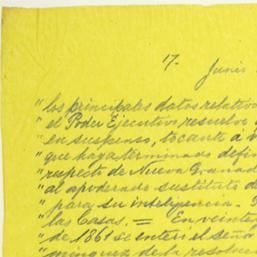 17.
Junio
"los principales datos relativo
"el Poder Ejecutivo resuelve
"en suspenso, tocante á
"que haya terminado defin
"respecto de Nueva Granad
"al apoderado sustituto d
"para su inteligencia.
"las Casas. = En veinte
"de 1861 se enteró el señor
"ninguna de la resoluci